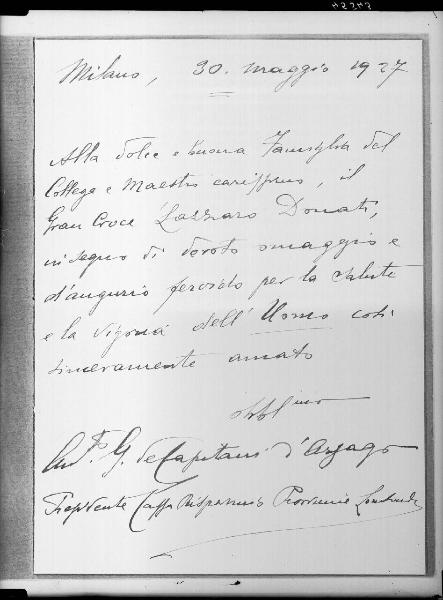 Milano, 30. maggio 1927
Alla dolce e buona Famiglia del
Collega e Maestro carissimo, il
Gran Croce Lazzaro Donati,
in segno di devoto omaggio e
d'augurio fervido per la salute
e la vigoria dell'Uomo così
sinceramente amato
obbl.mo
G. de Capitani d'Arzago
Presidente Cassa Risparmio Provincie Lombarde